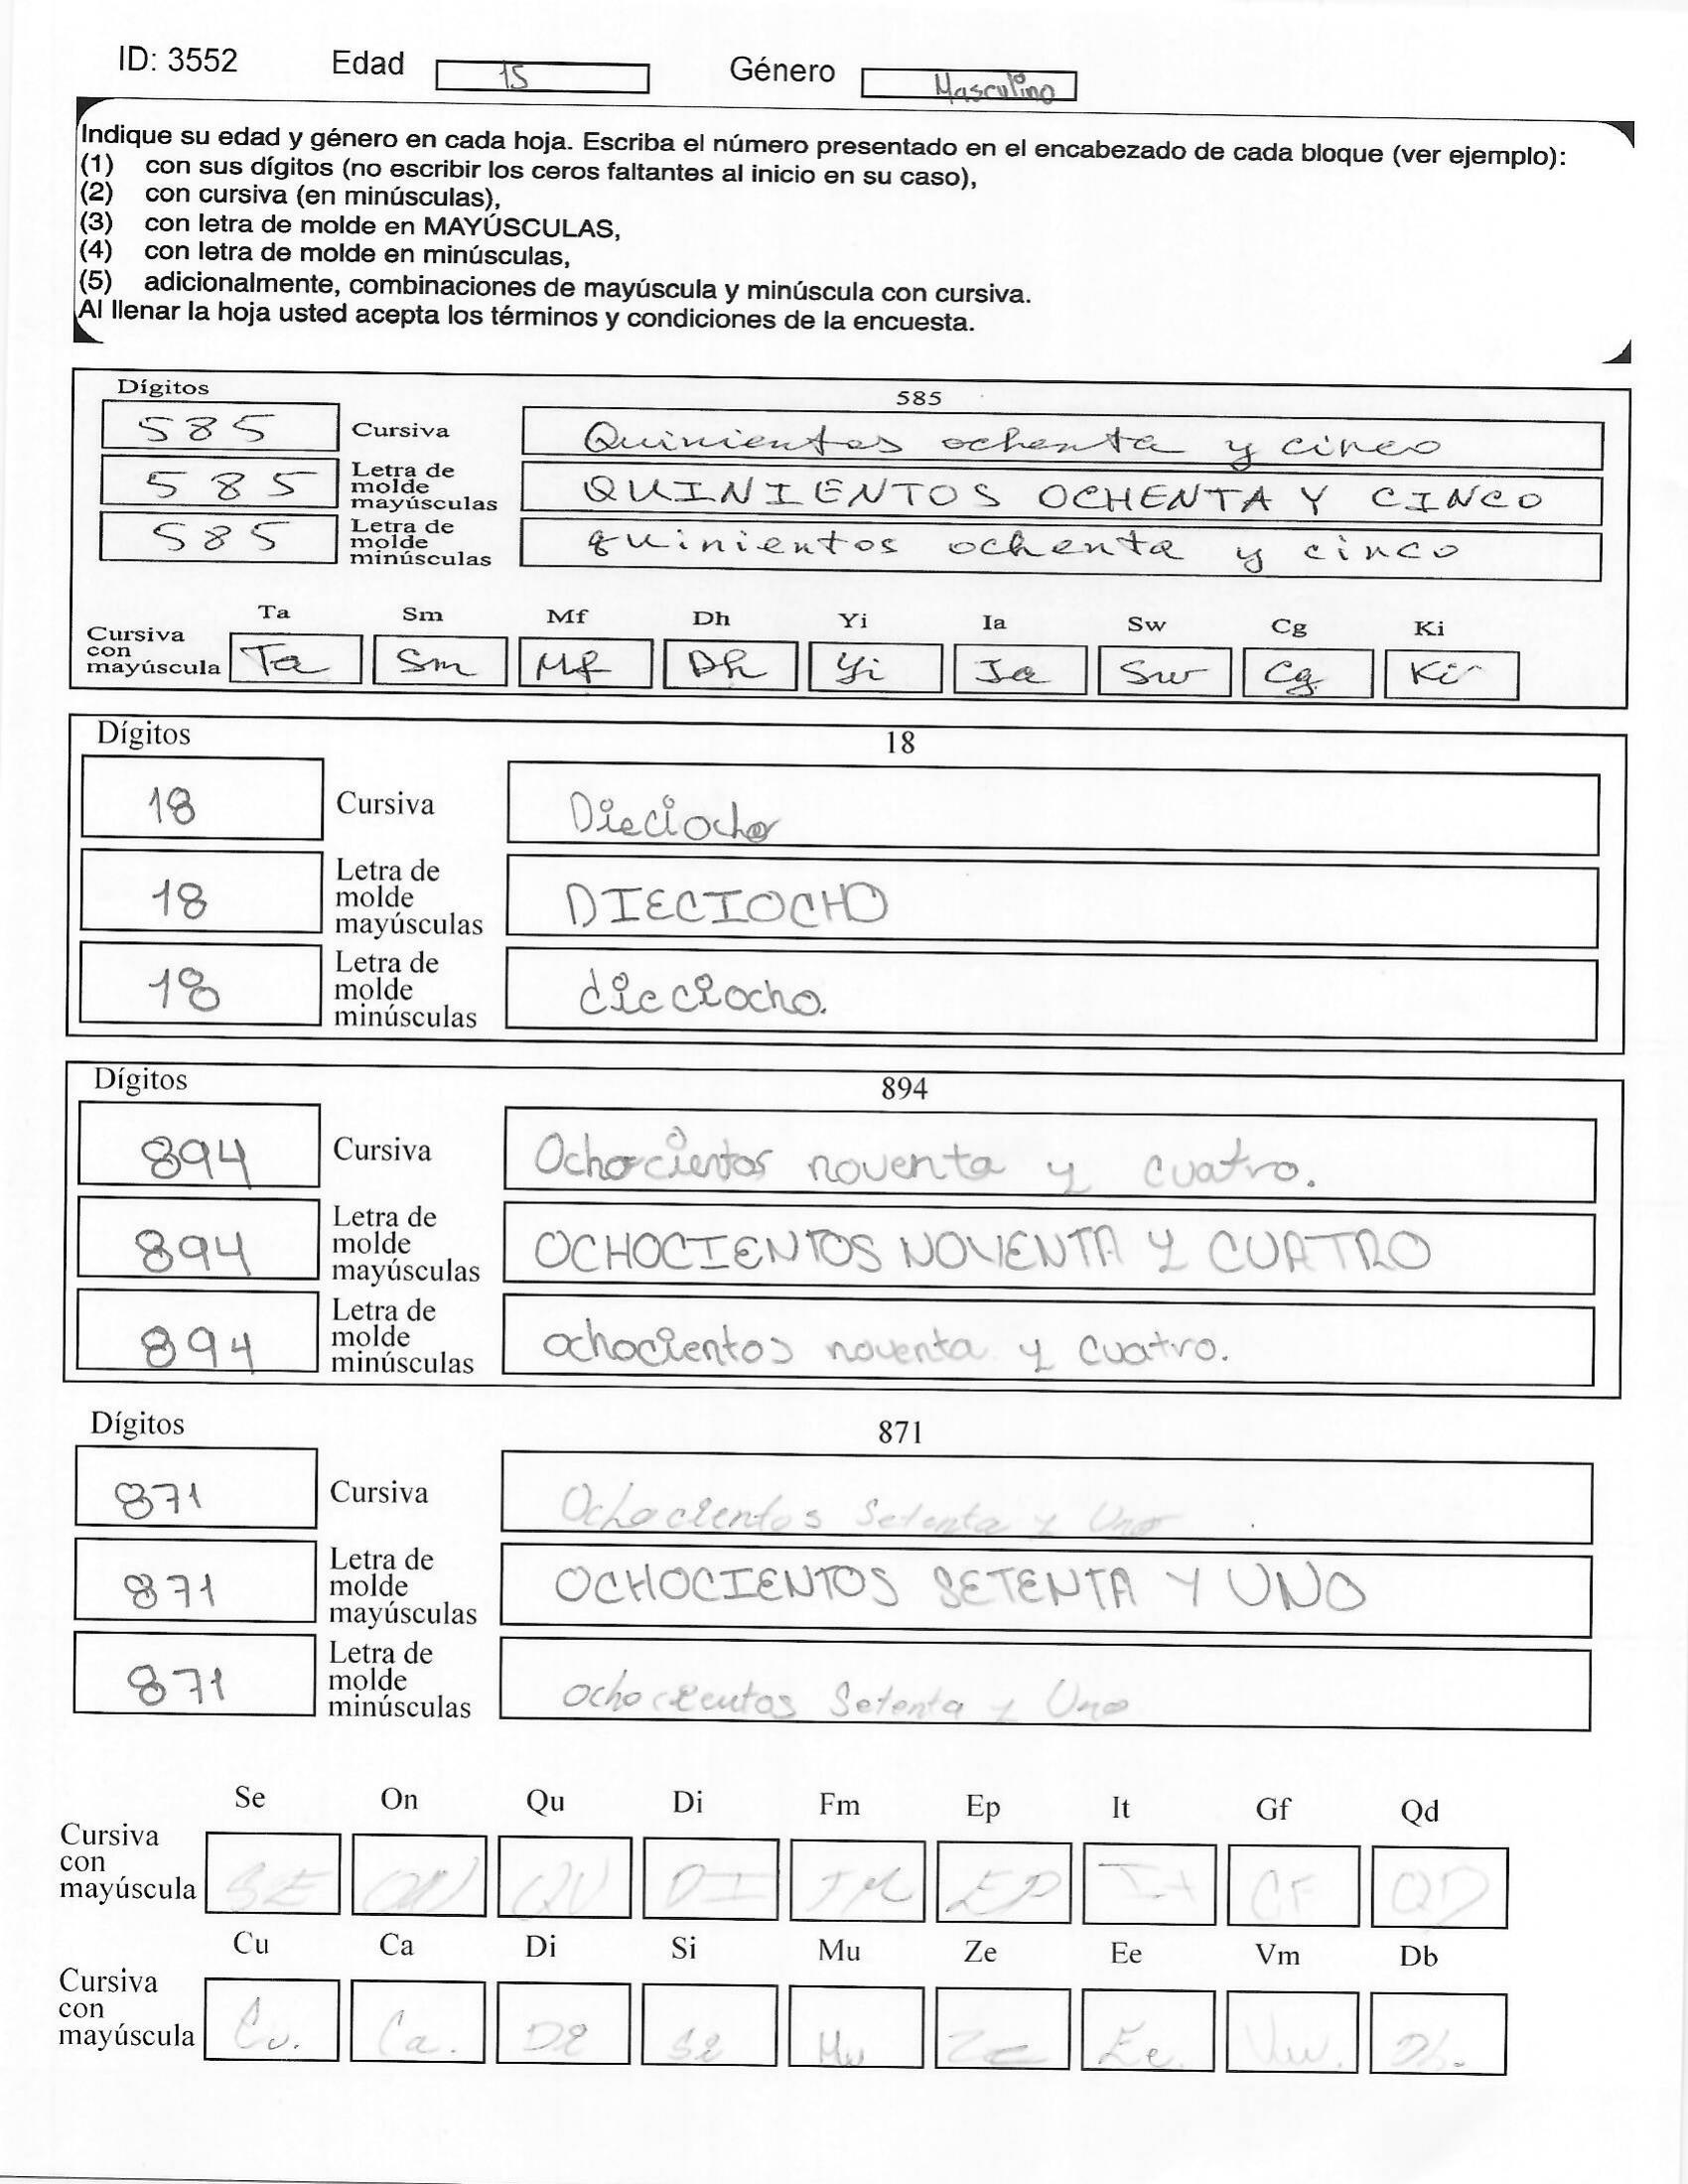 ID: 3552 Edad 15 Género Masculino
Indique su edad y género en cada hoja. Escriba el número presentado en el encabezado de cada bloque (ver ejemplo):
(1) con sus dígitos (no escribir los ceros faltantes al inicio en su caso),
(2) con cursiva (en minúsculas),
(3) con letra de molde en MAYÚSCULAS,
(4) con letra de molde en minúsculas,
(5) adicionalmente, combinaciones de mayúscula y minúscula con cursiva.
Al llenar la hoja usted acepta los términos y condiciones de la encuesta.
Dígitos 585
585 Cursiva Quinientos ochenta y cinco
585 Letra de molde mayúsculas QUINIENTOS OCHENTA Y CINCO
585 Letra de molde minúsculas quinientos ochenta y cinco
Ta Sm Mf Dh Yi Ia Sw Cg Ki
Cursiva con mayúscula Ta Sm Mf Dh Yi Ia Sw Cg Ki
Dígitos 18
18 Cursiva Dieciocho
18 Letra de molde mayúsculas DIECIOCHO
18 Letra de molde minúsculas dieciocho.
Dígitos 894
894 Cursiva Ochocientos noventa y cuatro.
894 Letra de molde mayúsculas OCHOCIENTOS NOVENTA Y CUATRO
894 Letra de molde minúsculas ochocientos noventa y cuatro.
Dígitos 871
871 Cursiva Ochocientos Setenta y Uno
871 Letra de molde mayúsculas OCHOCIENTOS SETENTA Y UNO
871 Letra de molde minúsculas ochocientos Setenta y Uno
Se On Qu Di Fm Ep It Gf Qd
Cursiva con mayúscula SE ON QU DI FM EP It GF QD
Cu Ca Di Si Mu Ze Ee Vm Db
Cursiva con mayúscula Cu. Ca. Di Si Mu Ze Ee. Vm. Db.